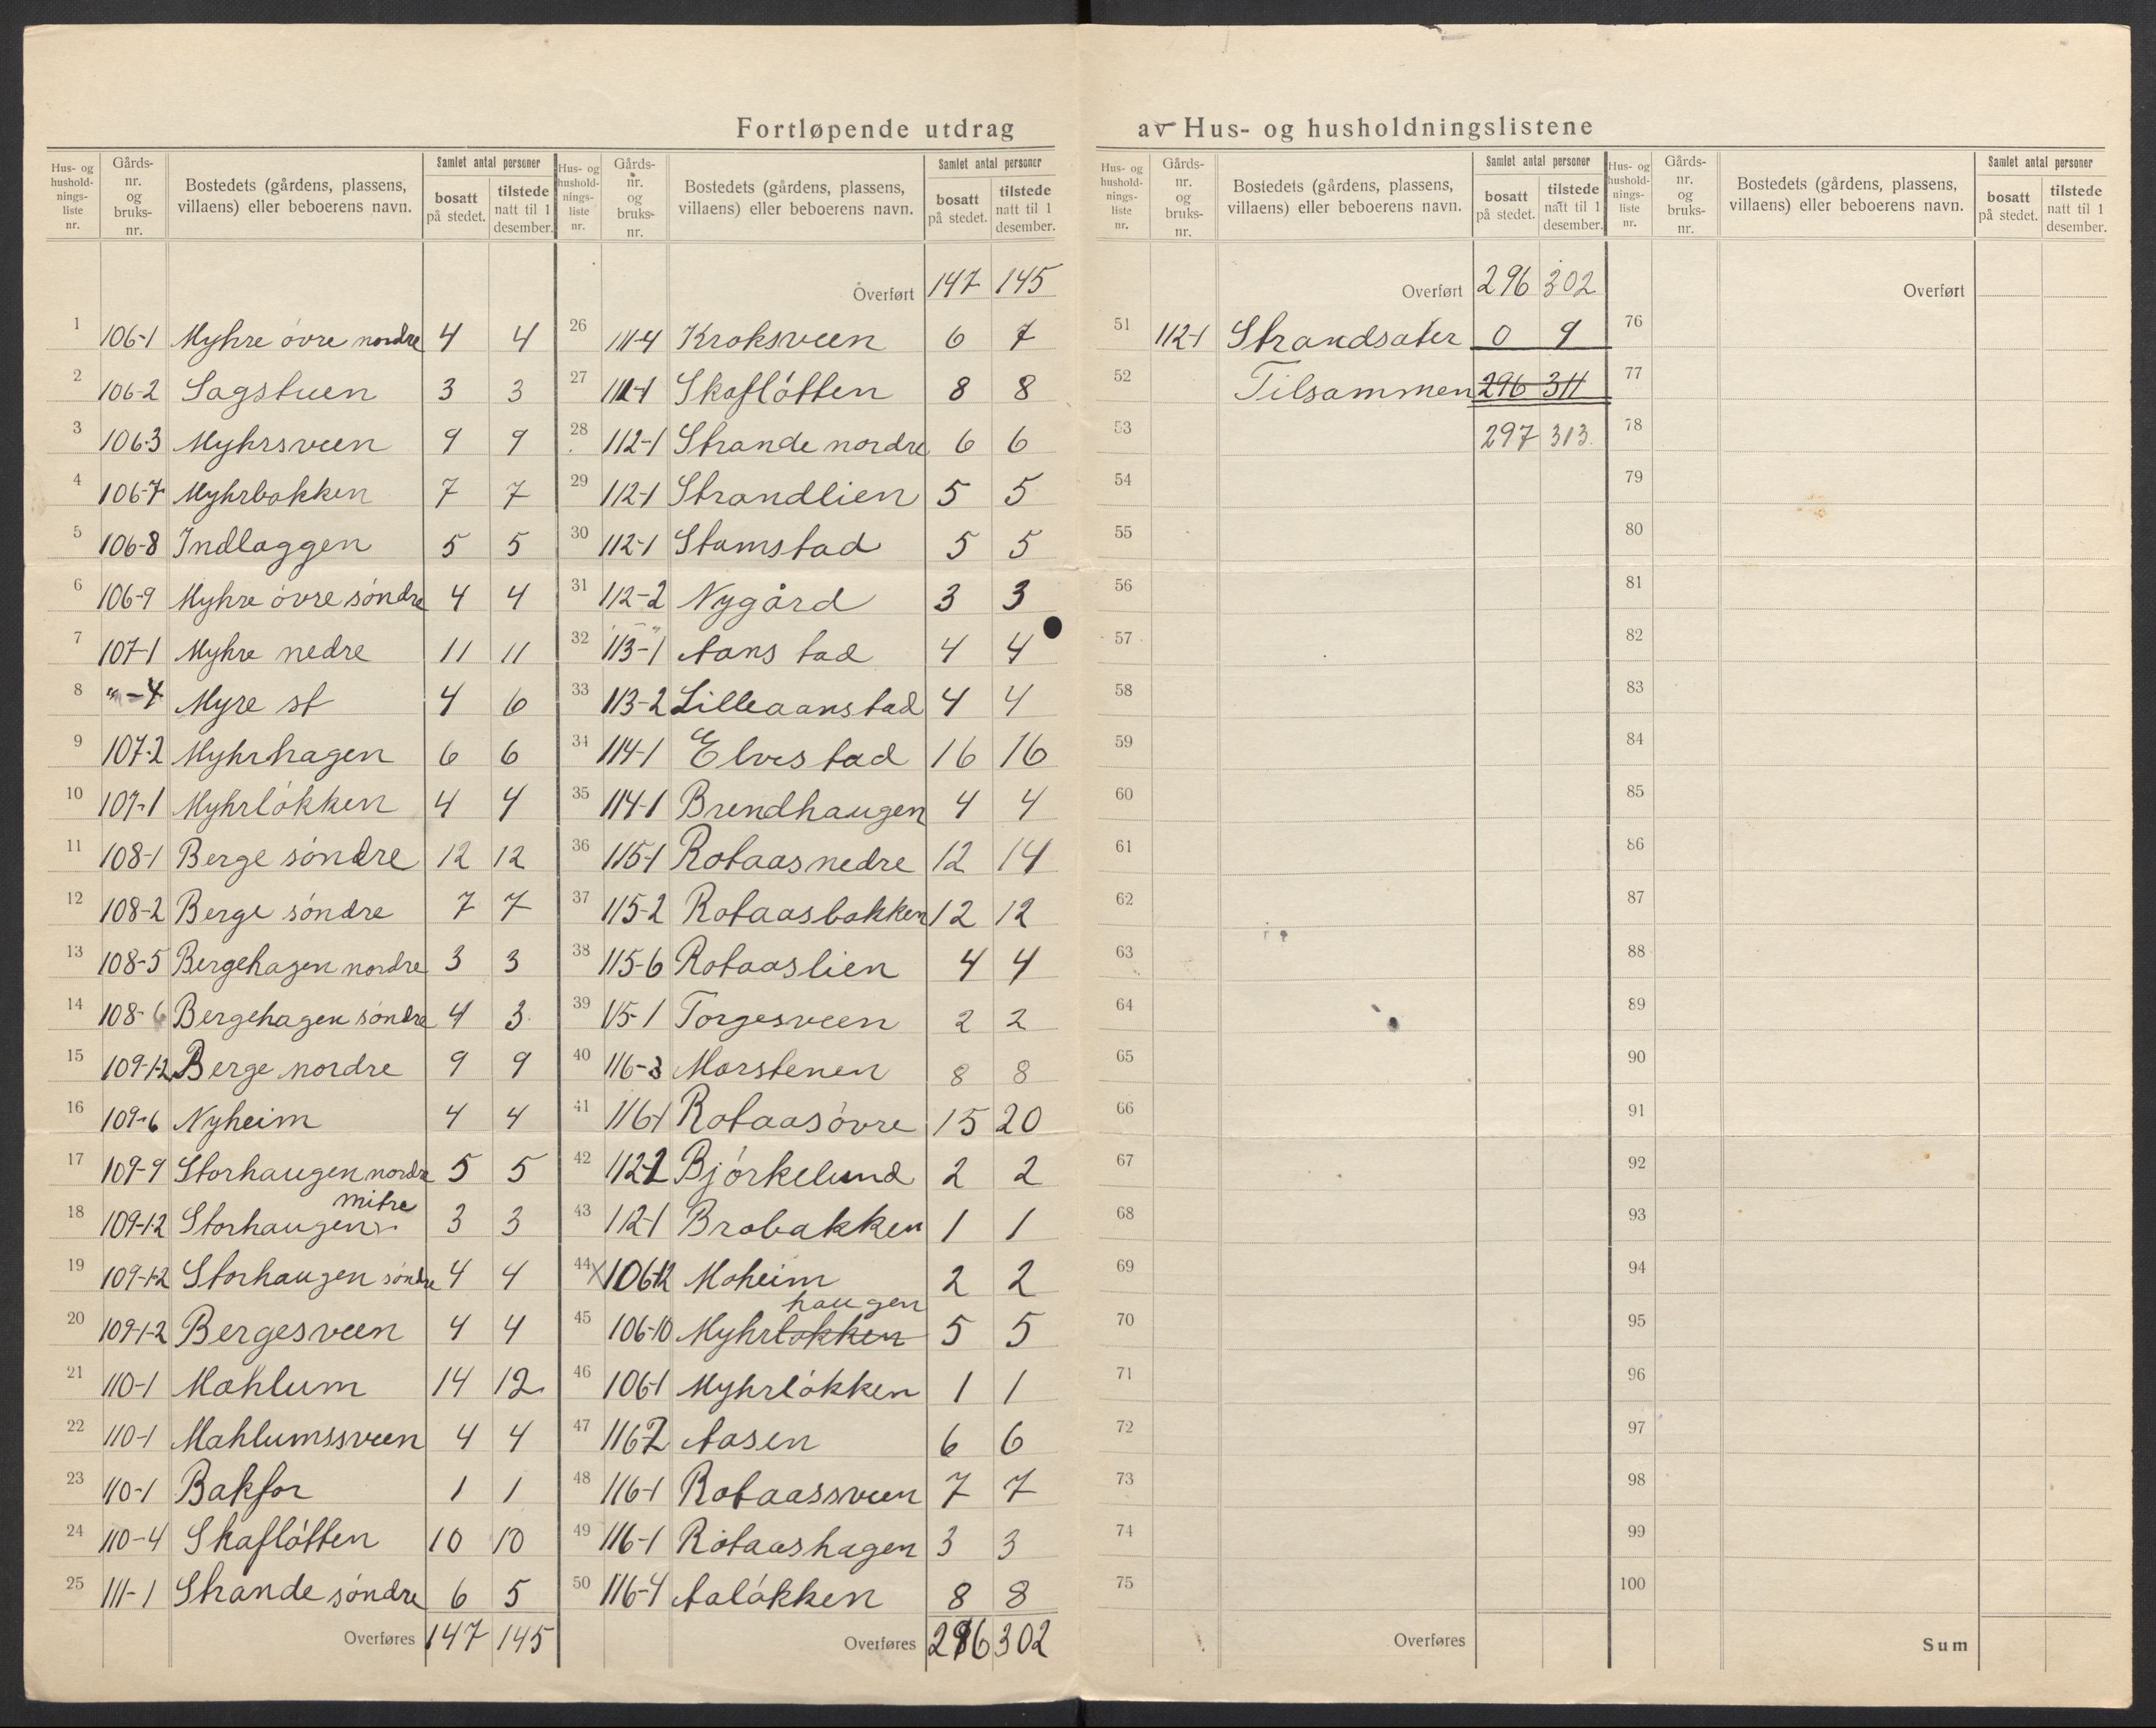 Fortløpende utdrag av Hus- og husholdningslistene
Hus- og hushold-nings-liste nr. | Gårds-nr. og bruks-nr. | Bostedets (gårdens, plassens, villaens) eller beboerens navn. | Samlet antal personer | bosatt på stedet. | tilstede natt til 1 desember.
1 106-1 Myhre óvre nordre 4 4
2 106-2 Sagstuen 3 3
3 106-3 Myhrsveen 9 9
4 106-7 Myhrbakken 7 7
5 106-8 Indlaggen 5 5
6 106-9 Myhre óvre søndre 4 4
7 107-1 Myhre nedre 11 11
8 "-4 Myre st 4 6
9 107-2 Myhrhagen 6 6
10 107-1 Myhrlókken 4 4
11 108-1 Berge sóndre 12 12
12 108-2 Berge sóndre 7 7
13 108-5 Bergehagen nordre 3 3
14 108-6 Bergehagen sóndre 4 3
15 109-1-2 Berge nordre 9 9
16 109-6 Nyheim 4 4
17 109-9 Storhaugen nordre 5 5
18 109-1-2 Storhaugen mitre 3 3
19 109-1-2 Storhaugen sóndre 4 4
20 109-1-2 Bergesveen 4 4
21 110-1 Mæhlum 14 12
22 110-1 Mæhlumssveen 4 4
23 110-1 Bakfor 1 1
24 110-4 Skaflótten 10 10
25 111-1 Strande sóndre 6 5
Overføres 147 145
Hus- og hushold-nings-liste nr. | Gårds-nr. og bruks-nr. | Bostedets (gårdens, plassens, villaens) eller beboerens navn. | Samlet antal personer | bosatt på stedet. | tilstede natt til 1 desember.
Overført 147 145
26 111-4 Kroksveen 6 7
27 111-1 Skaflótten 8 8
28 112-1 Strande nordre 6 6
29 112-1 Strandlien 5 5
30 112-1 Stamstad 5 5
31 112-2 Nygård 3 3
32 113-1 Aanstad 4 4
33 113-2 Lilleaanstad 4 4
34 114-1 Elvestad 16 16
35 114-1 Brendhaugen 4 4
36 115-1 Rotaas nedre 12 14
37 115-2 Rotaasbakken 12 12
38 115-6 Rotaaslien 4 4
39 115-1 Torgesveen 2 2
40 116-3 Marstenen 8 8
41 116-1 Rotaas óvre 15 20
42 112-2 Bjórkelund 2 2
43 112-1 Brobakken 1 1
44 x 106-12 Moheim 2 2
45 106-10 Myhrlokken haugen 5 5
46 106-1 Myhrlókken 1 1
47 116-2 Aasen 6 6
48 116-1 Rotaassveen 7 7
49 116-1 Rotaashagen 3 3
50 116-4 Aalókken 8 8
Overføres 296 302
Hus- og hushold-nings-liste nr. | Gårds-nr. og bruks-nr. | Bostedets (gårdens, plassens, villaens) eller beboerens navn. | Samlet antal personer | bosatt på stedet. | tilstede natt til 1 desember.
Overført 296 302
51 112-1 Strandsæter 0 9
52 Tilsammen 296 311
53 297 313
54
55
56
57
58
59
60
61
62
63
64
65
66
67
68
69
70
71
72
73
74
75
Overføres
Hus- og hushold-nings-liste nr. | Gårds-nr. og bruks-nr. | Bostedets (gårdens, plassens, villaens) eller beboerens navn. | Samlet antal personer | bosatt på stedet. | tilstede natt til 1 desember.
Overført
76
77
78
79
80
81
82
83
84
85
86
87
88
89
90
91
92
93
94
95
96
97
98
99
100
Sum